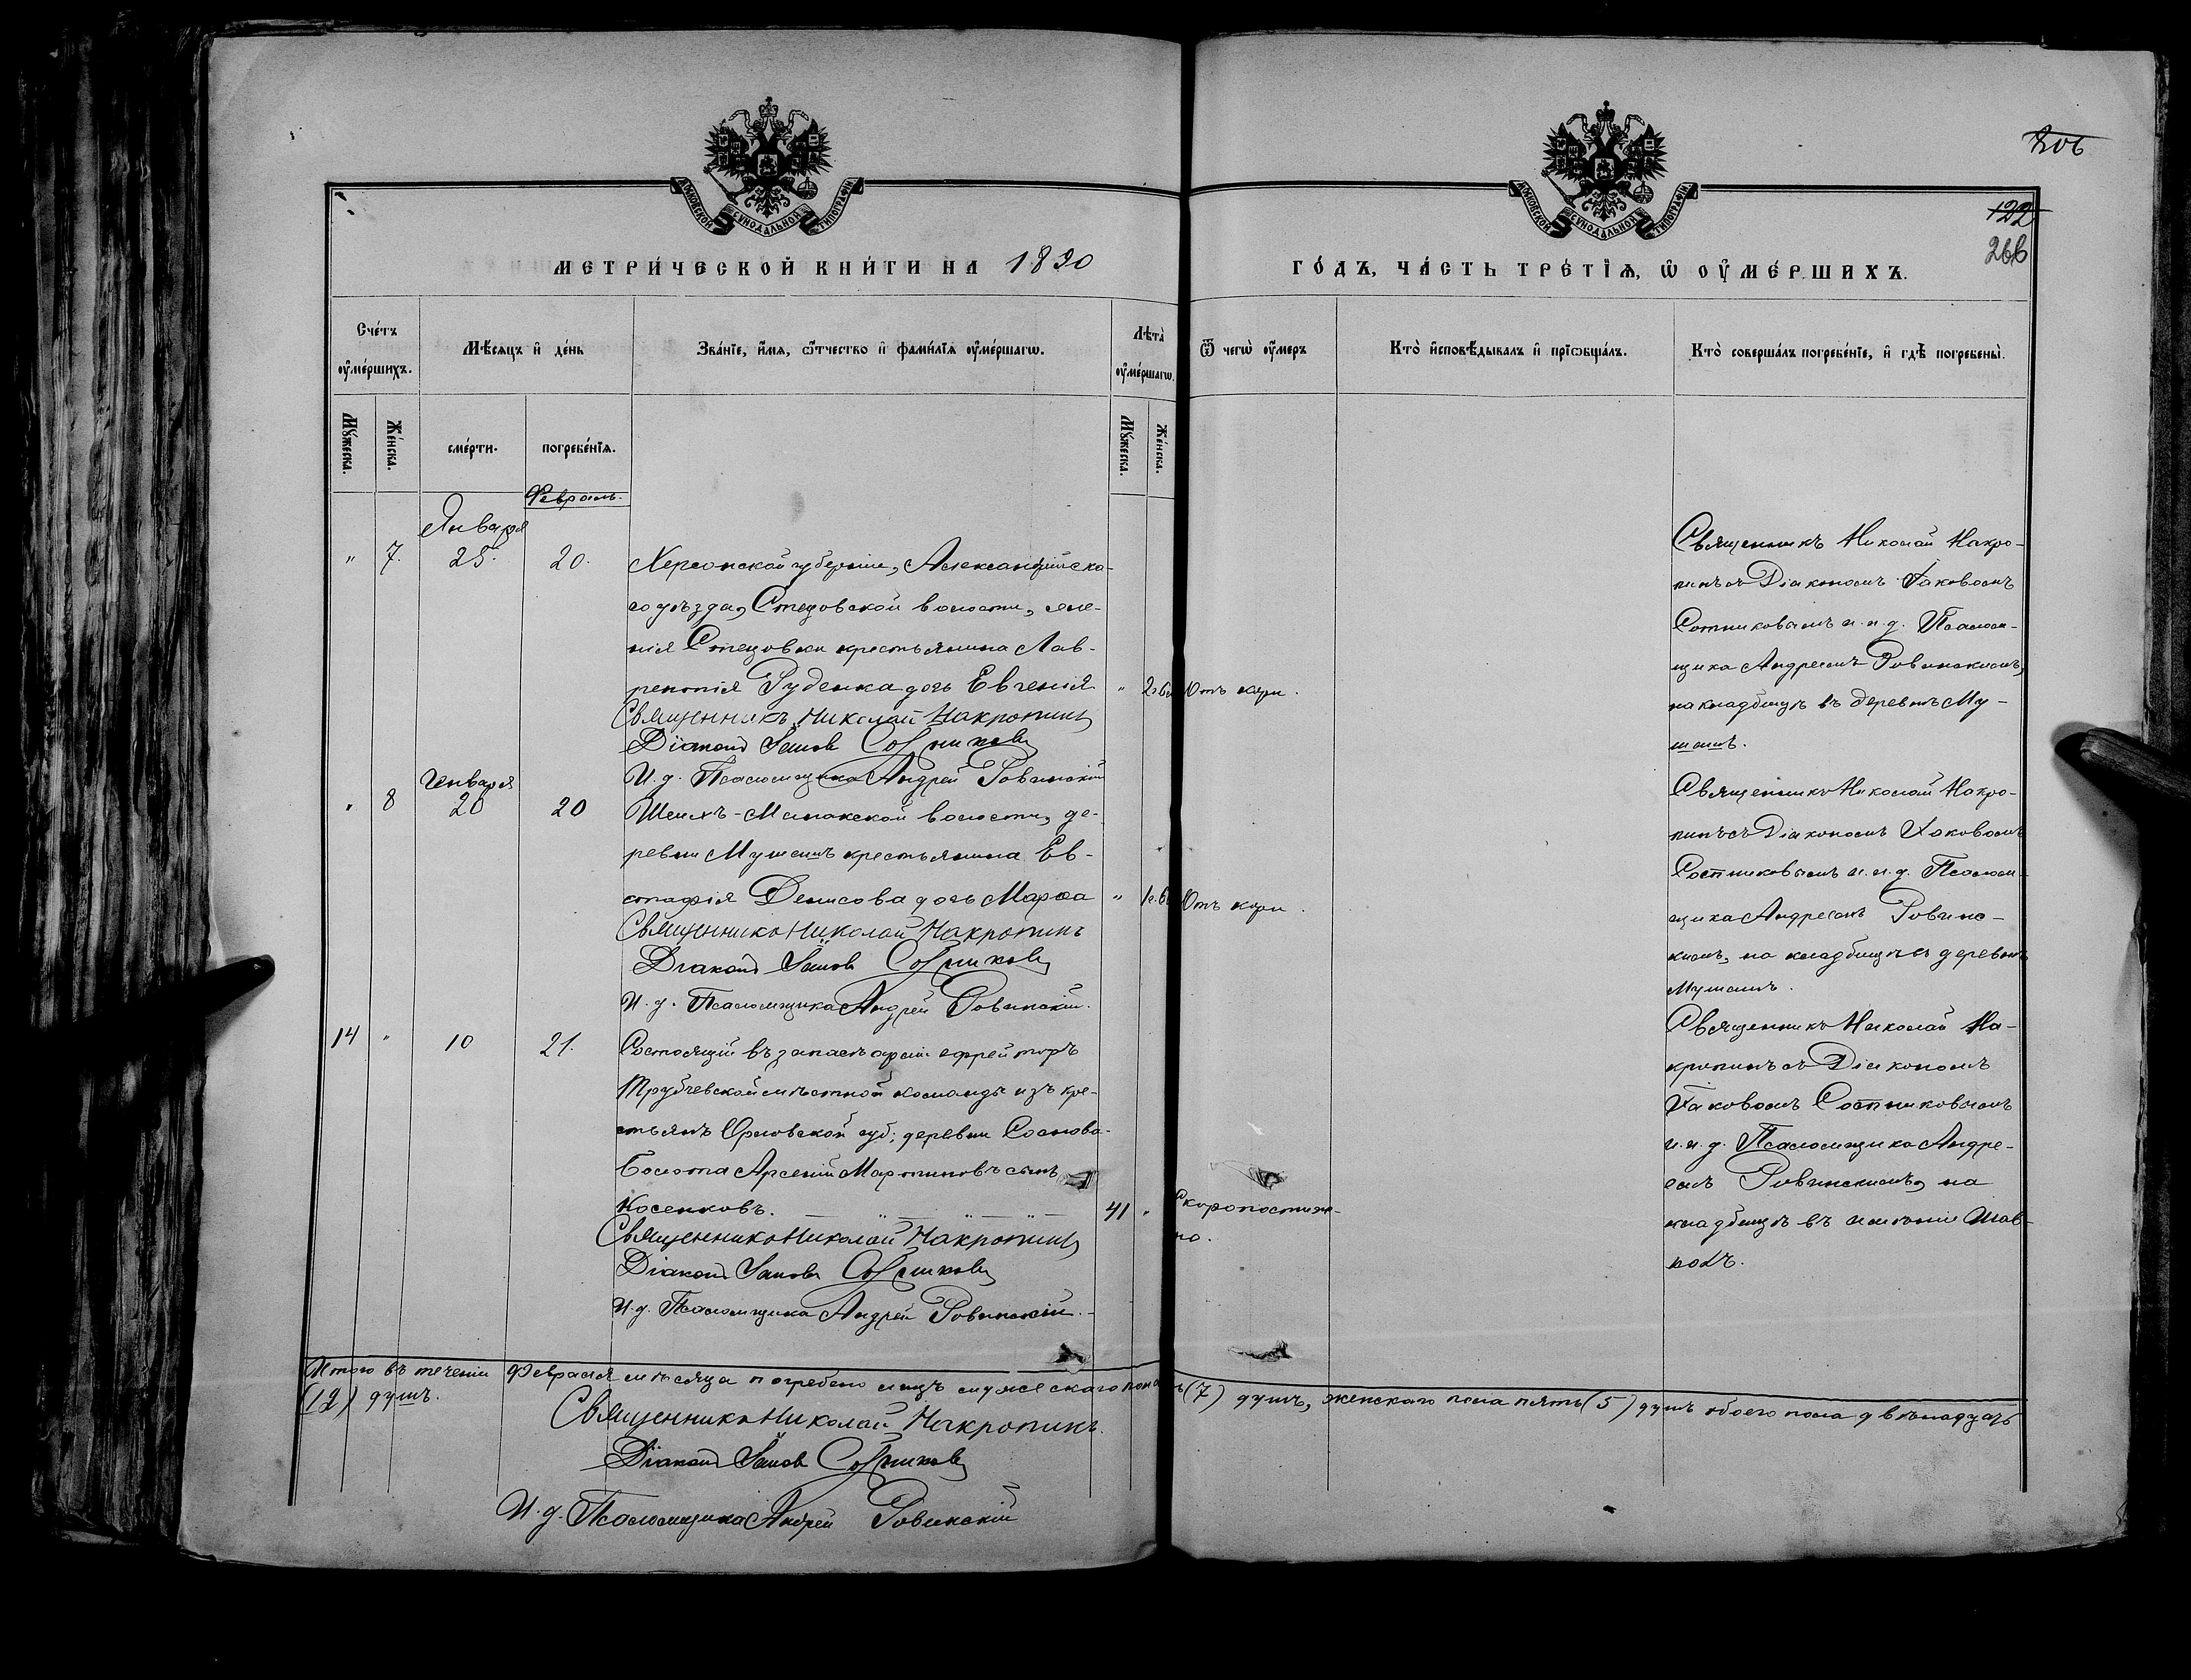 206
122
266
МОСКОВСКОЙ СУНОДАЛЬНОЙ ТИПОГРАФІИ
МОСКОВСКОЙ СУНОДАЛЬНОЙ ТИПОГРАФІИ
МЕТРИ́ЧЕСКОЙ КНИ́ГИ НА 1890
ГО́ДЪ, ЧА́СТЬ ТРЕ́ТІѦ, Ѡ҆ ОУ҆МЕ́РШИХЪ.
Сче́тъ оу҆ме́ршихъ.
Мѣ́сѧцъ и҆ де́нь
Зва́нїе, и҆́мѧ, ѻ҆́тчество и҆ фами́лїѧ оу҆ме́ршагѡ.
Лѣ́та оу҆ме́ршагѡ.
Ѿ чегѡ̀ оу҆́меръ
Кто̀ и҆сповѣ́дывалъ и҆ прїѡбща́лъ.
Кто̀ соверша́лъ погребе́нїе, и҆ гдѣ̀ погребены̀.
Мꙋ́жеска.
Же́нска.
сме́рти.
погребе́нїѧ.
Мꙋ́жеска.
Же́нска.
Февраль.
Января
" 7. 25. 20.
Херсонской губерніи, Александрійска-
го уѣзда, Стецовской волости, селе-
нія Стецовки крестьянина Лав-
рентія Руденка дочь Евгенія " Отъ кори.
Священникъ Николай Накропинъ
Діаконъ Іаковъ Сотниковъ
И. д. Псаломщика Андрей Ровинскій
Священникъ Николай Накро-
пинъ съ Діакономъ Іаковомъ
Сотниковымъ и и. д. Псалом-
щика Андреемъ Ровинскимъ,
на кладбищѣ въ деревнѣ Му-
шашъ.
Генваря
" 8 20 20
Шеихъ-Монакской волости, де-
ревни Мушашъ крестьянина Ев-
стафія Денисова дочь Марѳа " Отъ кори.
Священникъ Николай Накропинъ
Діаконъ Іаковъ Сотниковъ
И. д. Псаломщика Андрей Ровинскій.
Священникъ Николай Накро-
пинъ съ Діакономъ Іаковомъ
Сотниковымъ и и. д. Псалом-
щика Андреемъ Ровинс-
кимъ, на кладбищѣ въ деревнѣ
Мушашъ.
14 " 10 21.
Состоящій въ запасѣ арміи ефрейторъ
Трубчевской мѣстной команды изъ кре-
стьянъ Орловской губ. деревни Соснова-
Болота Арсеній Мартиновъ сынъ
Косенковъ. 41 " Скоропостиж-
но.
Священникъ Николай Накропинъ
Діаконъ Іаковъ Сотниковъ
И. д. Псаломщика Андрей Ровинскій.
Священникъ Николай На-
кропинъ съ Діакономъ
Іаковомъ Сотниковымъ
и и. д. Псаломщика Андре-
емъ Ровинскимъ, на
кладбищѣ въ имѣніи
Итого въ теченіи Февраля мѣсяца погребено лицъ мужескаго пола (7) душъ, женскаго пола пять (5) душъ обоего пола двѣнадцать
(12) душъ.
Священникъ Николай Накропинъ.
Діаконъ Іаковъ Сотниковъ
И. д. Псаломщика Андрей Ровинскій